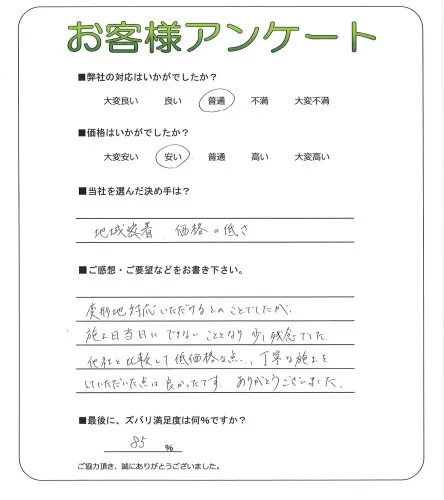 お客様アンケート
■弊社の対応はいかがでしたか？
大変良い 良い 普通 不満 大変不満
■価格はいかがでしたか？
大変安い 安い 普通 高い 大変高い
■当社を選んだ決め手は？
地域密着、価格の低さ
■ご感想・ご要望などをお書き下さい。
変形地対応いただけるとのことでしたが、
施工日当日にできないこととなり少し残念でした。
他社と比較して低価格な点、丁寧な施工を
していただいた点は良かったです。ありがとうございました。
■最後に、ズバリ満足度は何％ですか？
85 %
ご協力頂き、誠にありがとうございました。